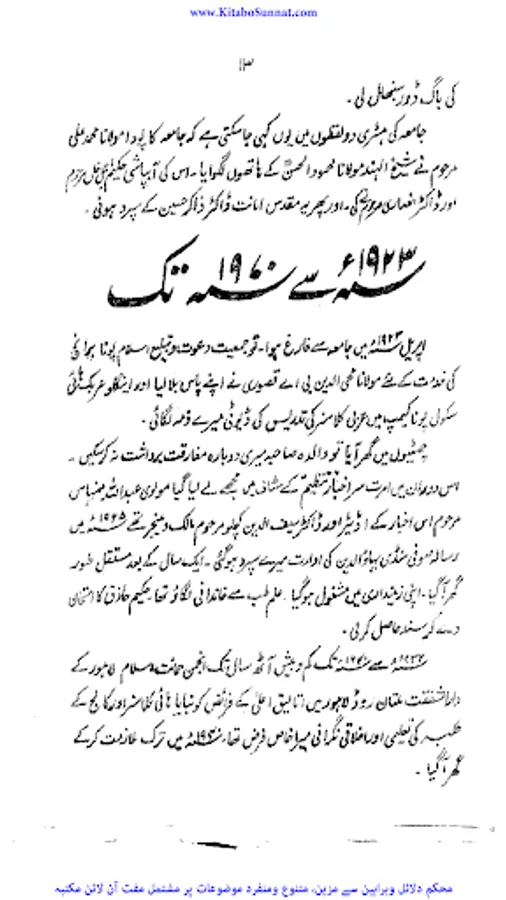 www.KitaboSunnat.com
۱۳
کی باگ ڈور سنبھال لی۔
جامعہ کی ہسٹری دو لفظوں میں یوں کہی جا سکتی ہے کہ جامعہ کا پودا مولانا محمد علی
مرحوم نے شیخ الہند مولانا محمود الحسنؒ کے ہاتھوں لگوایا۔ اس کی آبپاشی حکیم اجمل مرحوم
اور ڈاکٹر انصاری مرحوم نے کی۔ اور پھر یہ مقدس امانت ڈاکٹر ذاکر حسین کے سپرد ہوئی۔
سنہ ۱۹۲۳ء سے سنہ ۱۹۷۰ تک
اپریل سنہ ۱۹۲۳ء میں جامعہ سے فارغ ہوا۔ تو جمعیت دعوت و تبلیغ اسلام پونا ہوائی
کی خدمت کے لئے مولانا محی الدین بی اے قصوری نے اپنے پاس بلا لیا اور اینگلو عربک ہائی
سکول پونا کیمپ میں عربی کلاسز کی تدریس کی ڈیوٹی میرے ذمہ لگائی۔
چھٹیوں میں گھر آیا تو والدہ صاحبہ میری دوبارہ مفارقت برداشت نہ کر سکیں۔
اس دوران میں امرت سر اخبار تنظیم کے سٹاف میں مجھے لے لیا گیا مولوی عبداللہ منہاس
مرحوم اس اخبار کے ایڈیٹر اور ڈاکٹر سیف الدین کچلو مرحوم مالک و منیجر تھے سنہ ۱۹۲۵ء میں
رسالہ صوفی منڈی بہاؤ الدین کی ادارت میرے سپرد ہو گئی۔ ایک سال کے بعد مستقل طور
گھر آ گیا۔ اپنی زمینداری میں مشغول ہو گیا۔ علم طب سے خاندانی لگاؤ تھا حکیم حاذق کا امتحان
دے کر سند حاصل کر لی۔
سے سنہ ۱۹۴۰ء تک کم و بیش آٹھ سال تک انجمن حمایت اسلام لاہور کے
دارالشفقت ملتان روڈ لاہور میں اتالیق اعلیٰ کے فرائض کو نبھایا ہائی کلاسز اور کالج کے
طلبہ کی تعلیمی اور اخلاقی نگرانی میرا خاص فرض تھا، سنہ ۱۹۴۰ء میں ترک ملازمت کر کے
گھر آ گیا۔
محکم دلائل وبراہین سے مزین، متنوع ومنفرد موضوعات پر مشتمل مفت آن لائن مکتبہ